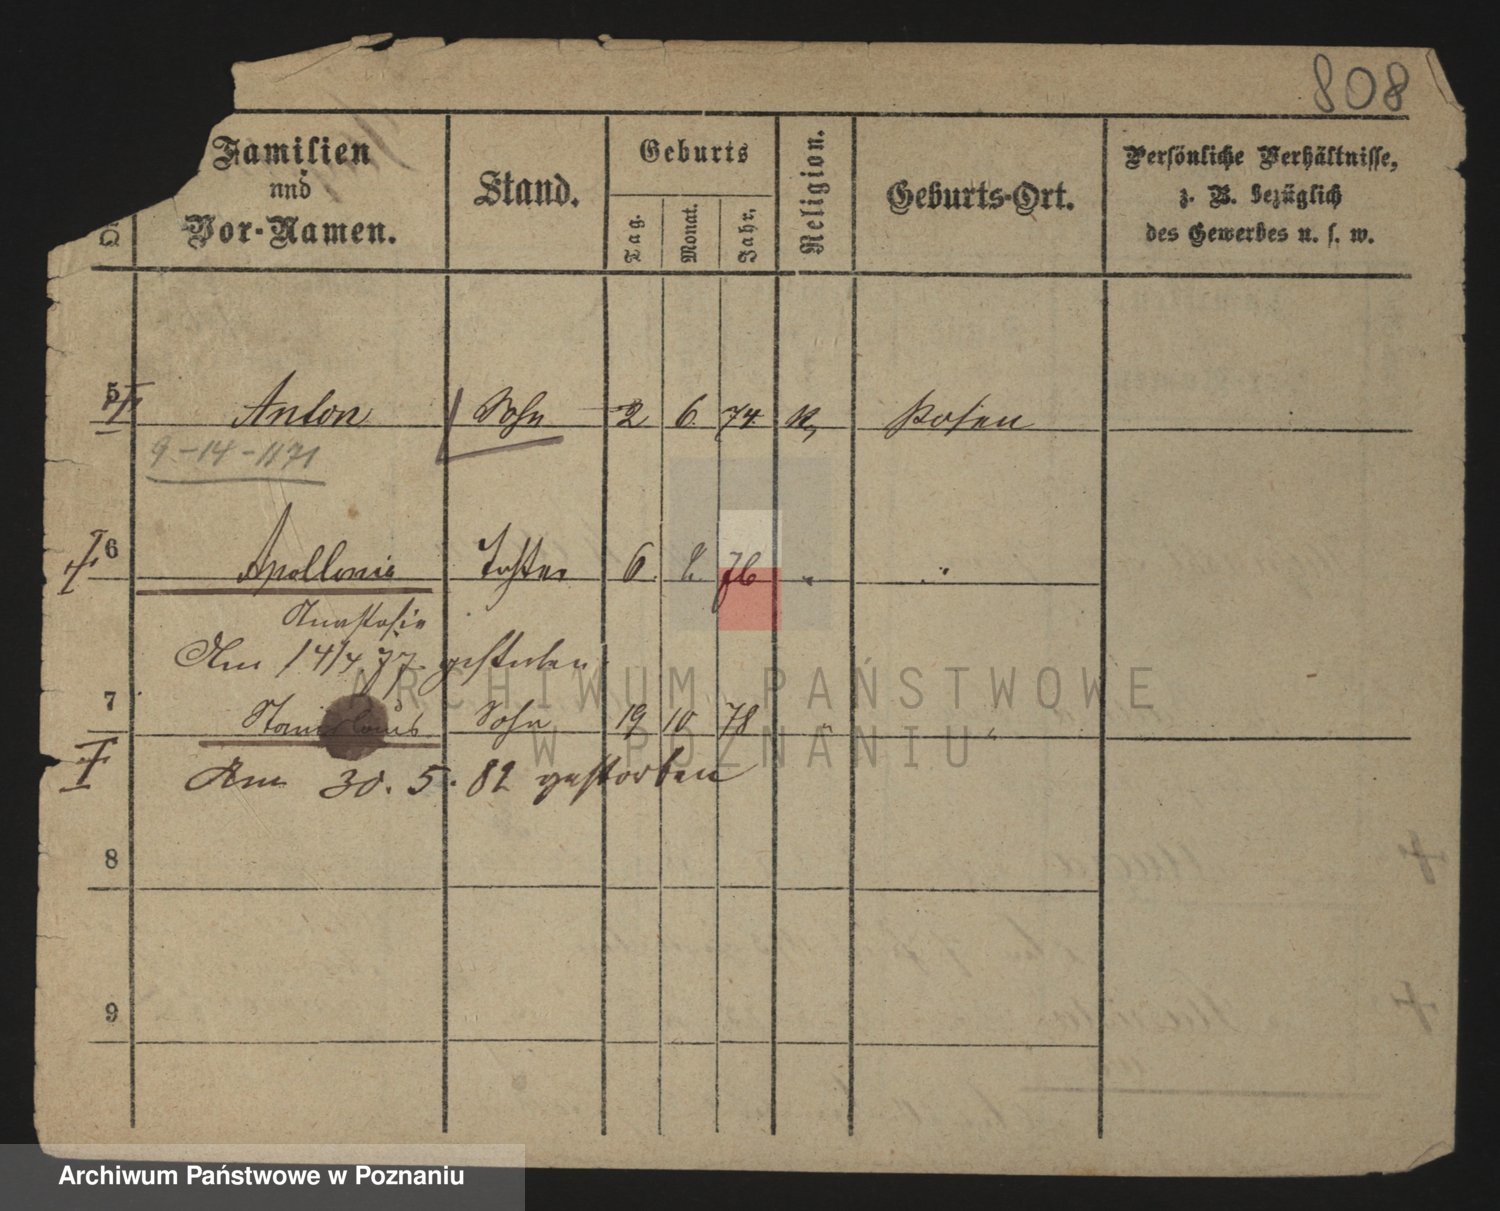 808
Familien
und
Vor-Namen.
Stand.
Geburts
Tag.
Monat.
Jahr.
Religion.
Geburts-Ort.
Persönliche Verhältnisse,
z. B. bezüglich
des Gewerbes u. s. w.
5 Anton Sohn 2 6 74 K, Posen
9-14-1171
6 Apollonia Tochter 6. 2. 76 " "
Anastasia
Am 14/4 77 gestorben
7 Stanislaus Sohn 19 10 78 " "
Am 30. 5. 82 gestorben
8
9
ARCHIWUM PAŃSTWOWE
W POZNANIU
Archiwum Państwowe w Poznaniu